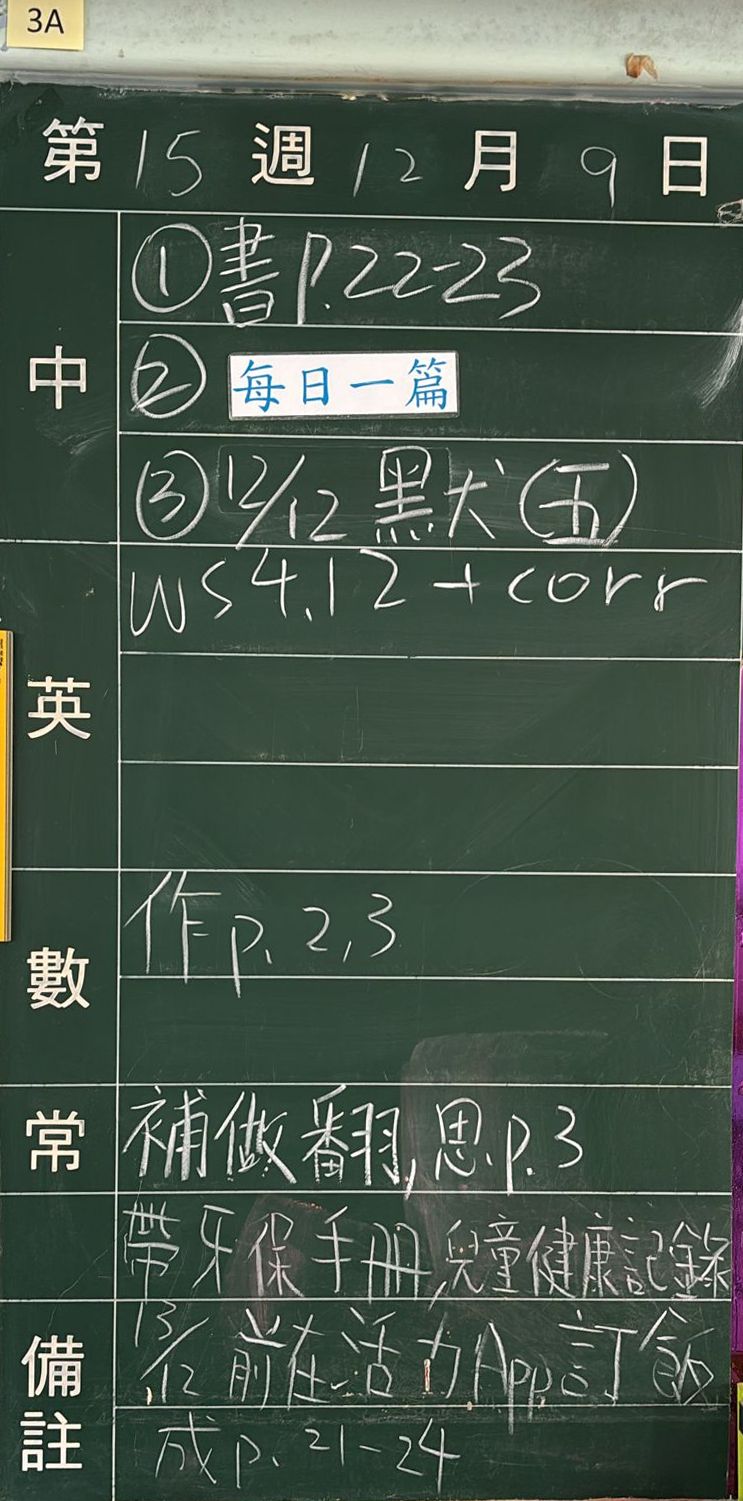 3A
第 15 週 12 月 9 日
中
①書P.22-23
② 每日一篇
③12/12 默犬(五)
英
WS 4.12 + corr
數
作p. 2,3
常
補做翻,思.p.3
帶牙保手冊,兒童健康記錄
備註
13/12 前在活力App訂飯
成p. 21-24